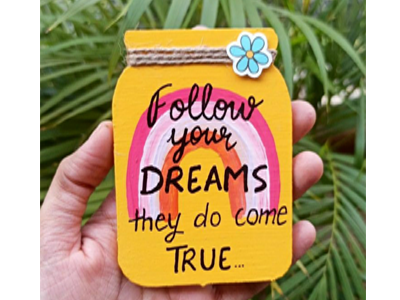 Follow
your
DREAMS
they do come
TRUE...